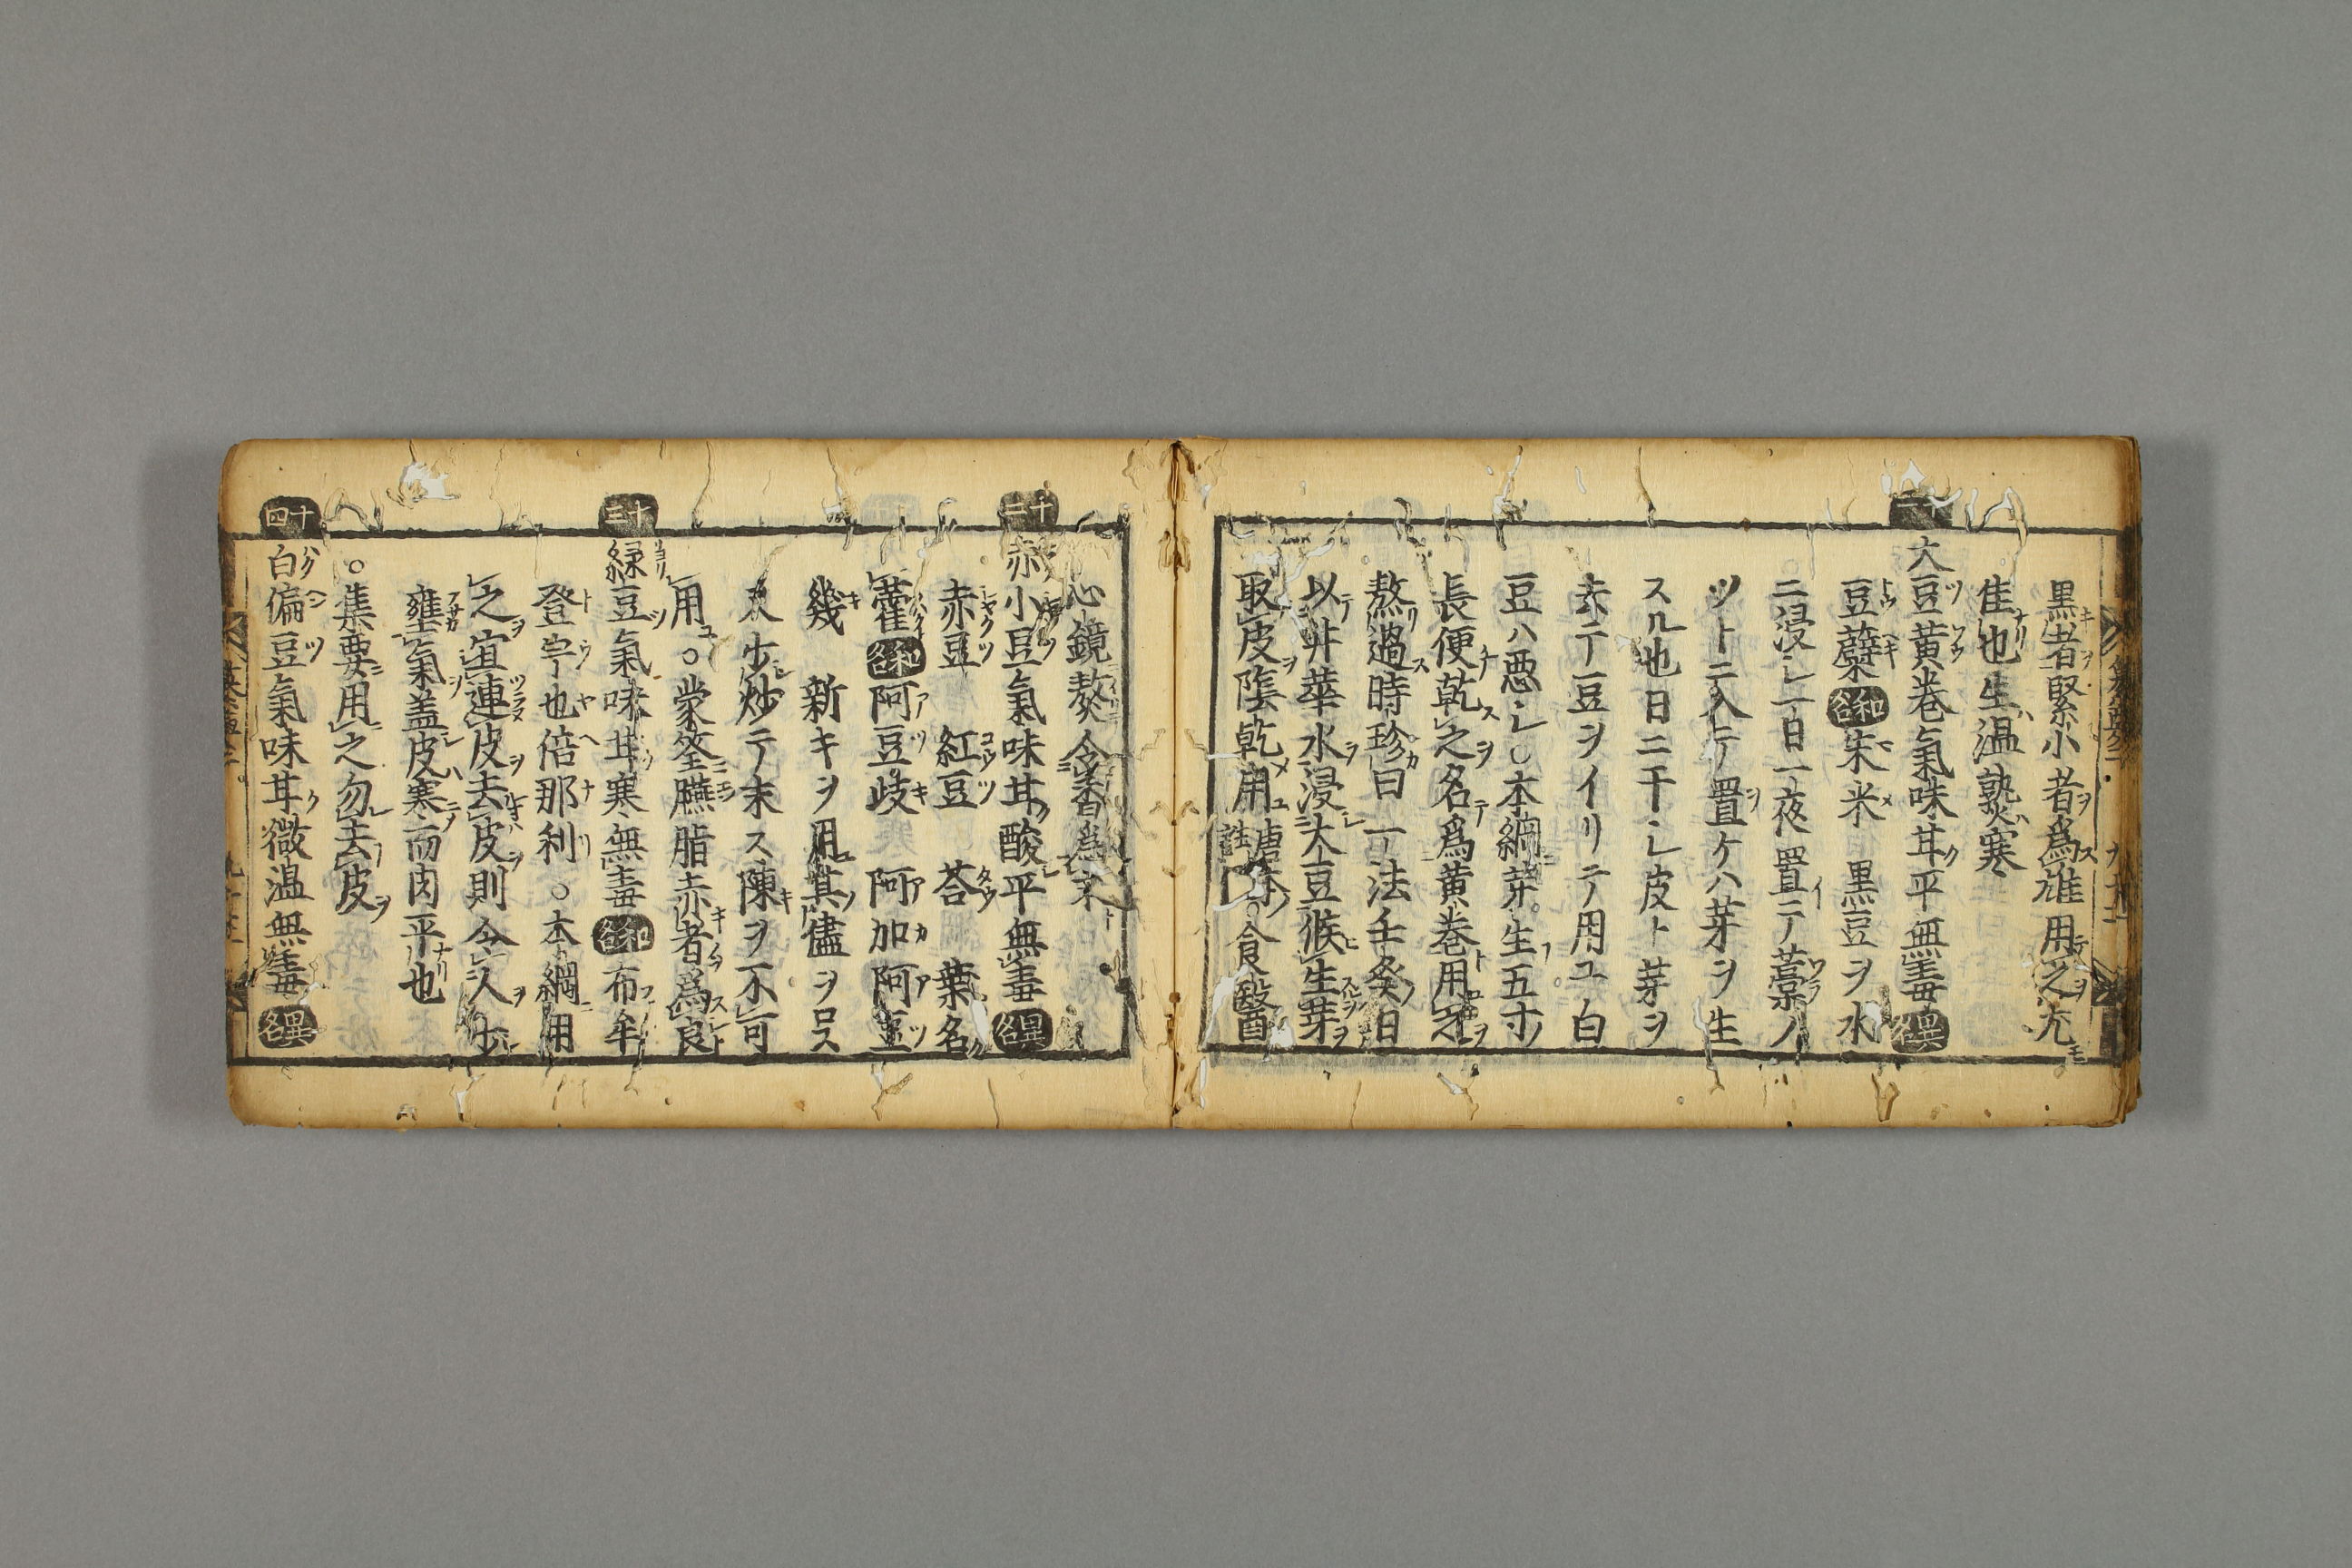 黒者緊小者為雄用之尤
佳也生温熟寒
大豆黄巻氣味甘平無毒 異名
豆蘗 和名 米 黒豆ヲ水
ニ浸シ一日一夜置テ藁ノ
ツトニ入テ置ケハ芽ヲ生
スル也日ニ干シ皮ト芽ヲ
去テ豆ヲイリテ用ユ白
豆ハ悪シ○本綱芽生五寸
長便乾之名為黄巻用之
熬過時珍曰一法壬癸日
以井華水浸大豆候生芽
取皮陰乾用 食醫
心鏡熬令香為末
十二
赤小豆氣味甘酸平無毒 異名
赤豆 紅豆 荅 葉名
藿 和名 阿豆岐 阿加阿豆
幾 新キヲ用其儘ヲロス
又少炒テ末ス陳ヲ不可
用○蒙筌臙脂赤者為良
十三
緑豆氣味甘寒無毒 和名 布牟
登宇也倍那利○本綱用
之宜連皮去皮則令人少
壅氣盖皮寒而肉平也
○集要用之勿去皮
十四
白偏豆氣味甘微温無毒 異名